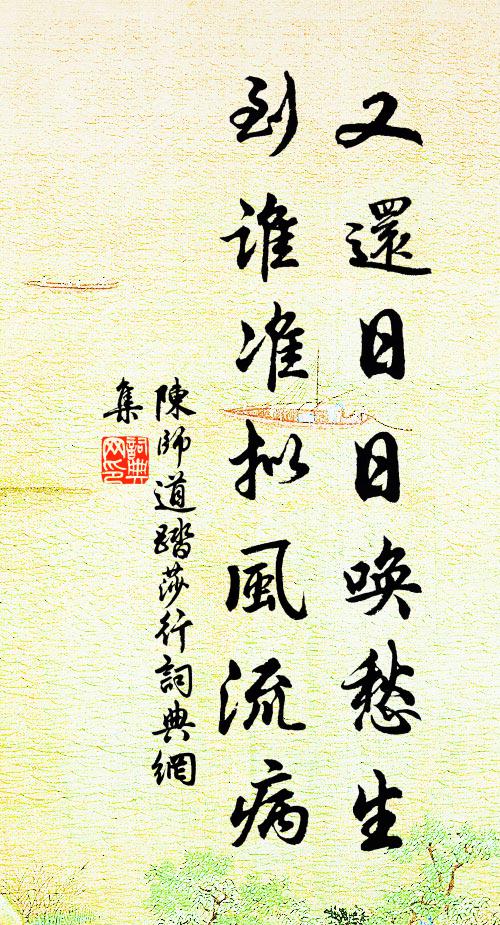 又還日日喚愁生
到誰准拟風流病
陳師道踏莎行詞典網
集
詞典网印